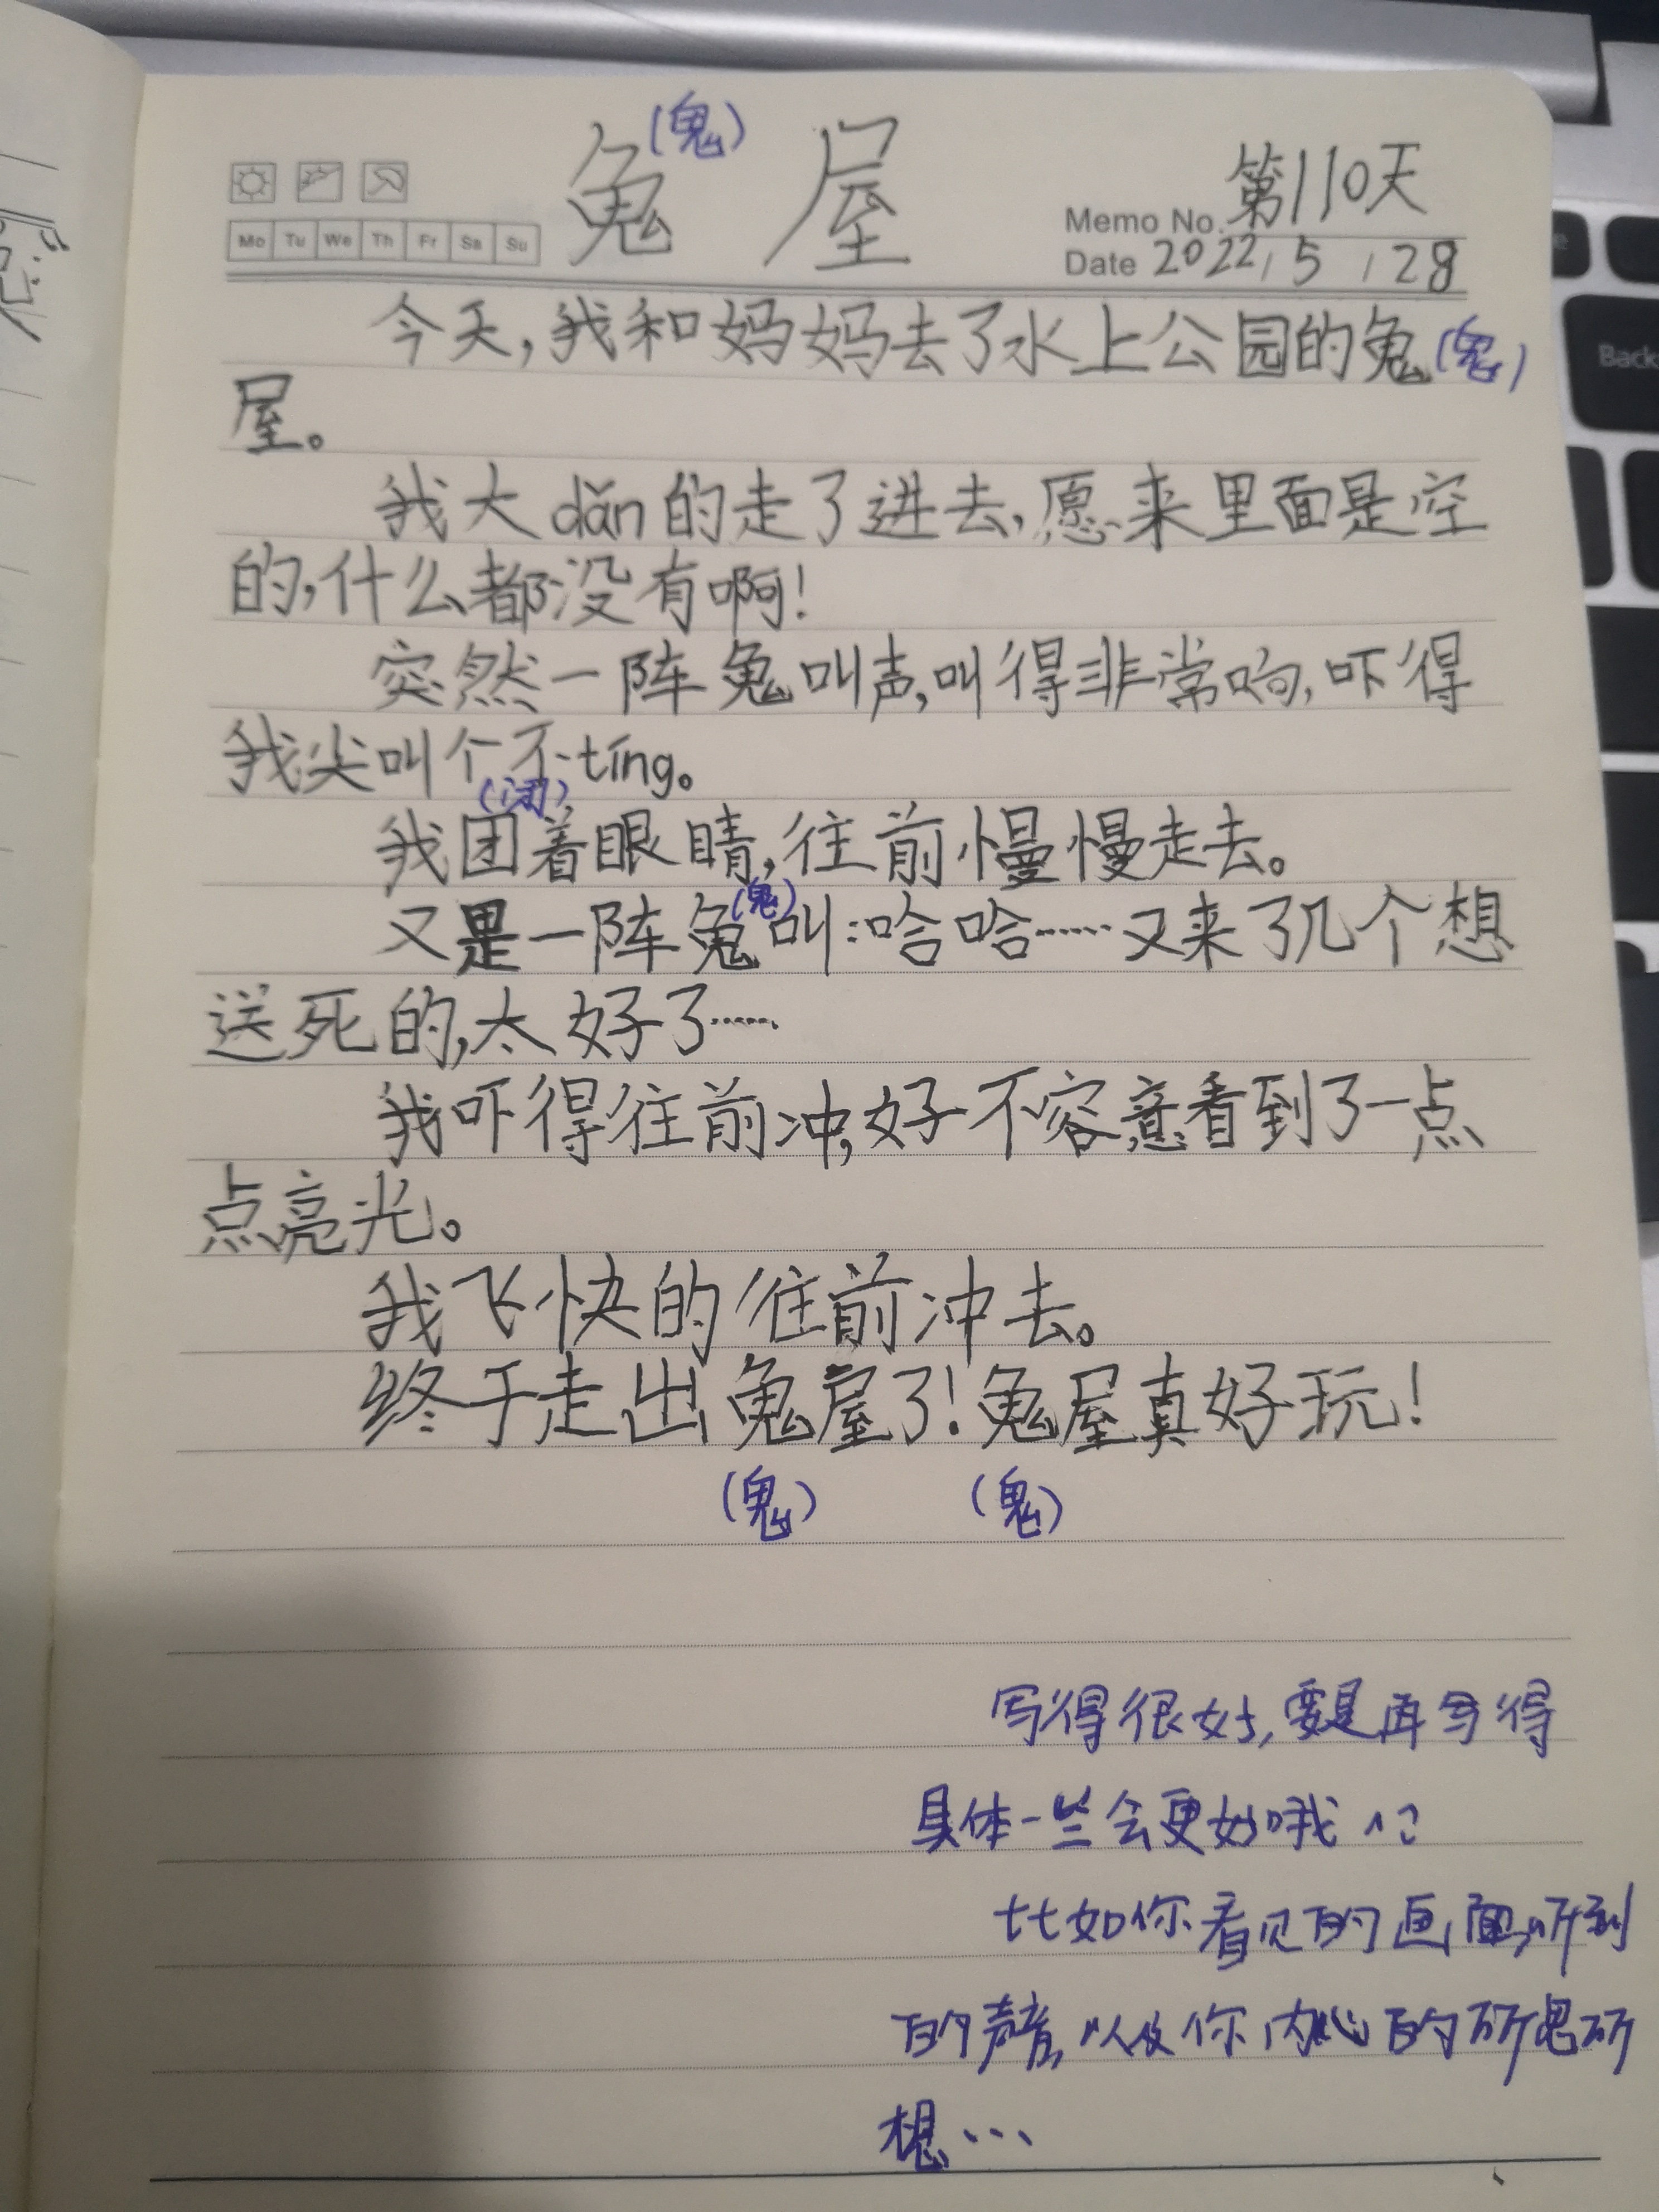 (鬼)
兔 屋
第110天
Memo No.
Mo Tu We Th Fr Sa Su
Date 2022/5/28
今天,我和妈妈去了水上公园的兔(鬼)
屋。
我大dǎn的走了进去,愿来里面是空
的,什么都没有啊!
突然一阵兔叫声,叫得非常响,吓得
我尖叫个不tíng。
(闭)
我团着眼睛,往前慢慢走去。
(鬼)
又是一阵兔叫:哈哈……又来了几个想
送死的,太好了……
我吓得往前冲,好不容意看到了一点
点亮光。
我飞快的往前冲去。
终于走出兔屋了!兔屋真好玩!
(鬼) (鬼)
写得很好,要是再写得
具体一些会更好哦
比如你看见的画面,听到
的声音,以及你内心的所思所
想…
Back